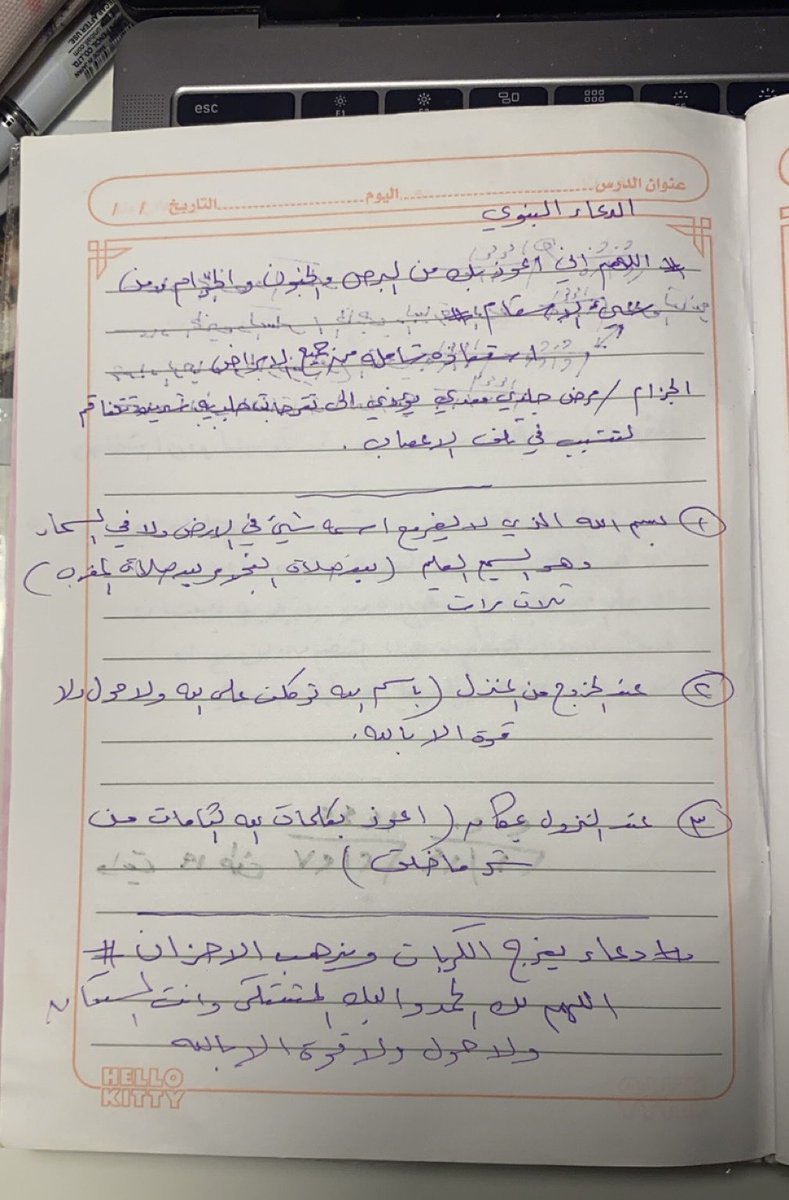 esc
F1
عنوان الدرس............اليوم............التاريخ / /
الدعاء النبوي
# اللهم إني اعوذ بك من البرص والجنون والجذام ومن
سيء الاسقام #
استعاذه شاملة من جميع الامراض
الجزام / مرض جلدي معدي يؤدي الى تقرحات جلديه شديدة تتفاقم
لتتسبب في تلف الاعصاب .
١ بسم الله الذي لا يضر مع اسمه شيئ في الارض ولا في السماء
وهو السميع العليم (بعد صلاة الفجر وبعد صلاة المغرب)
ثلاث مرات
٢ عند الخروج من المنزل (باسم الله توكلت على الله ولا حول ولا
قوة الا بالله.
٣ عند النزول بمكان (اعوذ بكلمات الله التامات من
شر ما خلق)
# دعاء يفرج الكربات ويذهب الاحزان #
اللهم لك الحمد واليك المشتكى وانت المستعان
ولا حول ولا قوة الا بالله
HELLO
KITTY